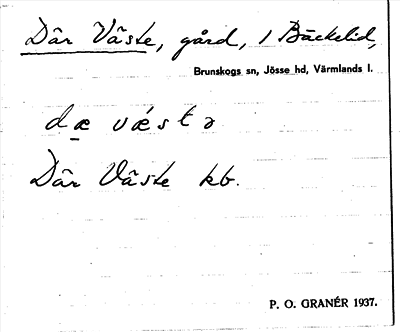 Där Väste, gård, i Bäckelid,
Brunskogs sn, Jösse hd, Värmlands l.
dæ vǽstə
Där Väste kb.
P. O. GRANÉR 1937.